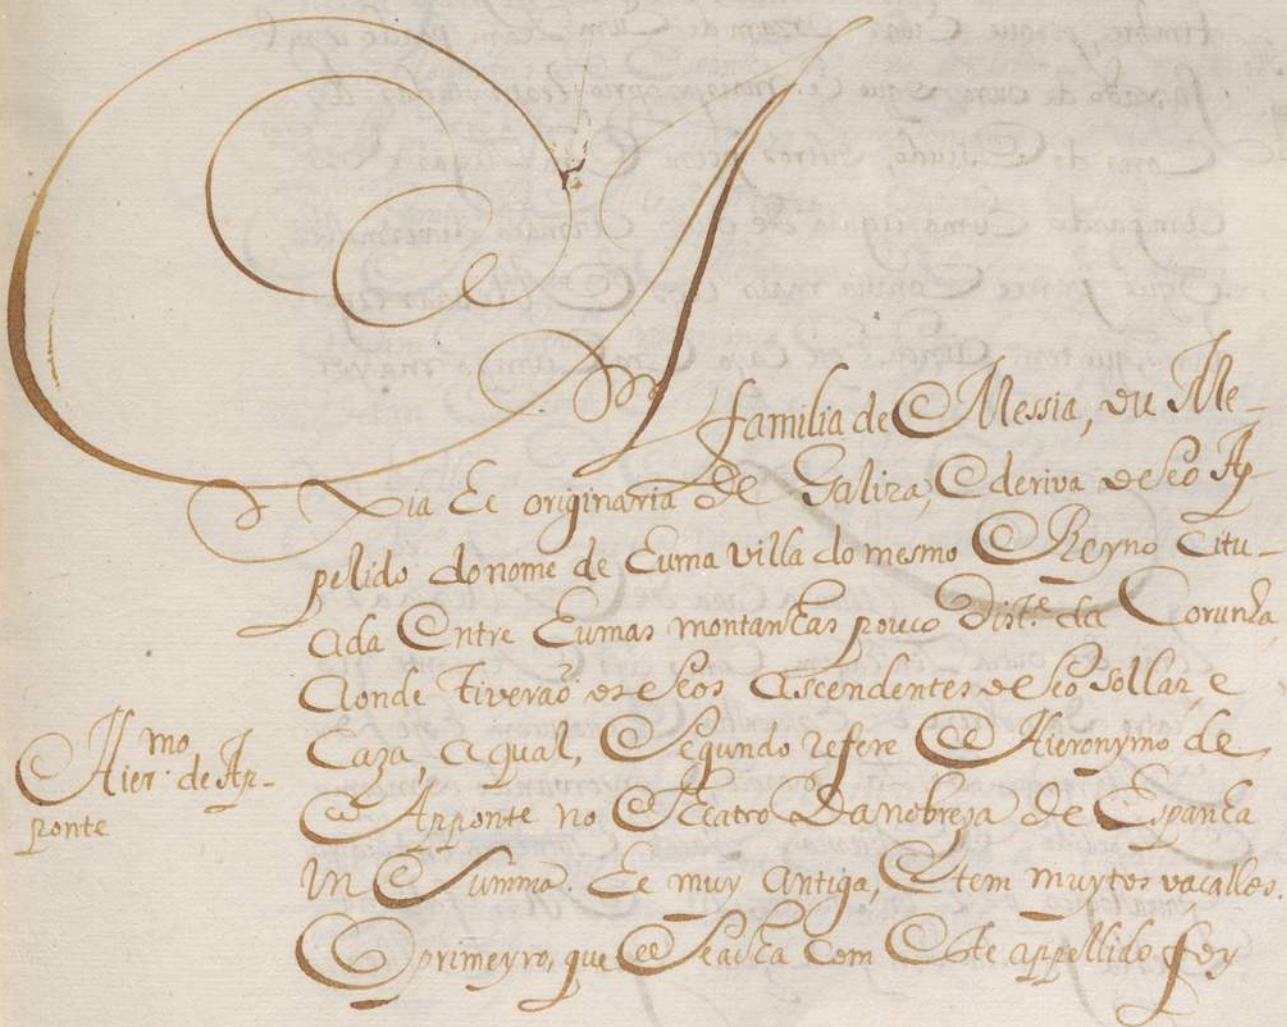 A
familia de Messia, ou Me-
xia he originaria de Galiza, e deriva o seo Ap-
pelido do nome de huma villa do mesmo Reyno citu-
ada entre humas montanhas pouco dist.e da Corunha,
aonde tiveraõ os seos ascendentes o seo sollar, e
caza, a qual, segundo refere Hieronymo de
Apponte no Theatro da nobreza de Espanha
in summa. he muy antiga, e tem muytos vaçallos.
O primeyro, que se acha com este appellido foy
Hier.mo de Ap-
ponte